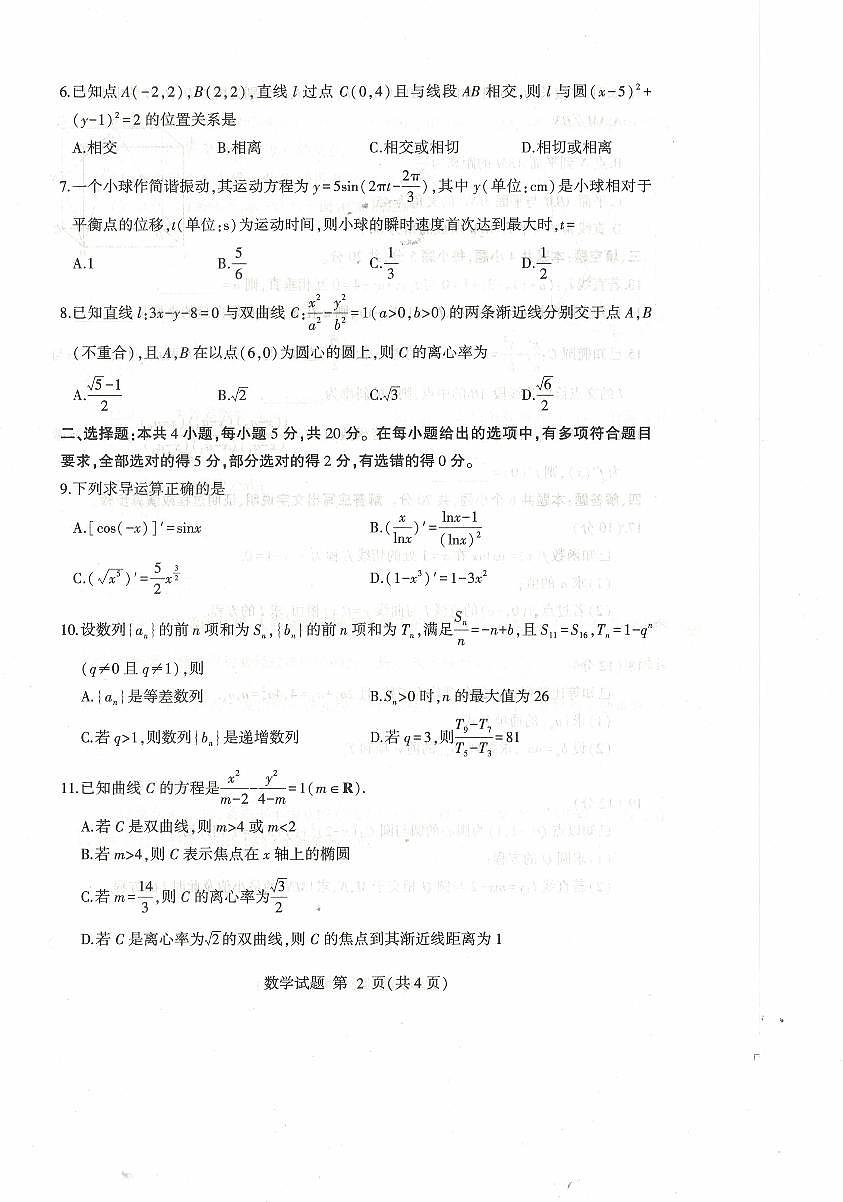 6.已知点 A(-2,2),B(2,2),直线 l 过点 C(0,4)且与线段 AB 相交,则 l 与圆(x-5)²+
(y-1)²=2 的位置关系是
A.相交 B.相离 C.相交或相切 D.相切或相离
7.一个小球作简谐振动,其运动方程为 y=5sin(2πt-2π/3),其中 y(单位:cm)是小球相对于
平衡点的位移,t(单位:s)为运动时间,则小球的瞬时速度首次达到最大时,t=
A.1 B.5/6 C.1/3 D.1/2
8.已知直线 l:3x-y-8=0 与双曲线 C:x²/a²-y²/b²=1(a>0,b>0)的两条渐近线分别交于点 A,B
(不重合),且 A,B 在以点(6,0)为圆心的圆上,则 C 的离心率为
A.(√5-1)/2 B.√2 C.√3 D.√6/2
二、选择题:本共 4 小题,每小题 5 分,共 20 分。在每小题给出的选项中,有多项符合题目
要求,全部选对的得 5 分,部分选对的得 2 分,有选错的得 0 分。
9.下列求导运算正确的是
A.[cos(-x)]′=sinx B.(x/lnx)′=(lnx-1)/(lnx)²
C.(√x⁵)′=5/2 x^(3/2) D.(1-x³)′=1-3x²
10.设数列{aₙ}的前 n 项和为 Sₙ,{bₙ}的前 n 项和为 Tₙ,满足Sₙ/n=-n+b,且 S₁₁=S₁₆,Tₙ=1-qⁿ
(q≠0 且 q≠1),则
A.{aₙ}是等差数列 B.Sₙ>0 时,n 的最大值为 26
C.若 q>1,则数列{bₙ}是递增数列 D.若 q=3,则(T₉-T₇)/(T₅-T₃)=81
11.已知曲线 C 的方程是x²/(m-2)-y²/(4-m)=1(m∈R).
A.若 C 是双曲线,则 m>4 或 m<2
B.若 m>4,则 C 表示焦点在 x 轴上的椭圆
C.若 m=14/3,则 C 的离心率为√3/2
D.若 C 是离心率为√2的双曲线,则 C 的焦点到其渐近线距离为 1
数学试题 第 2 页(共 4 页)